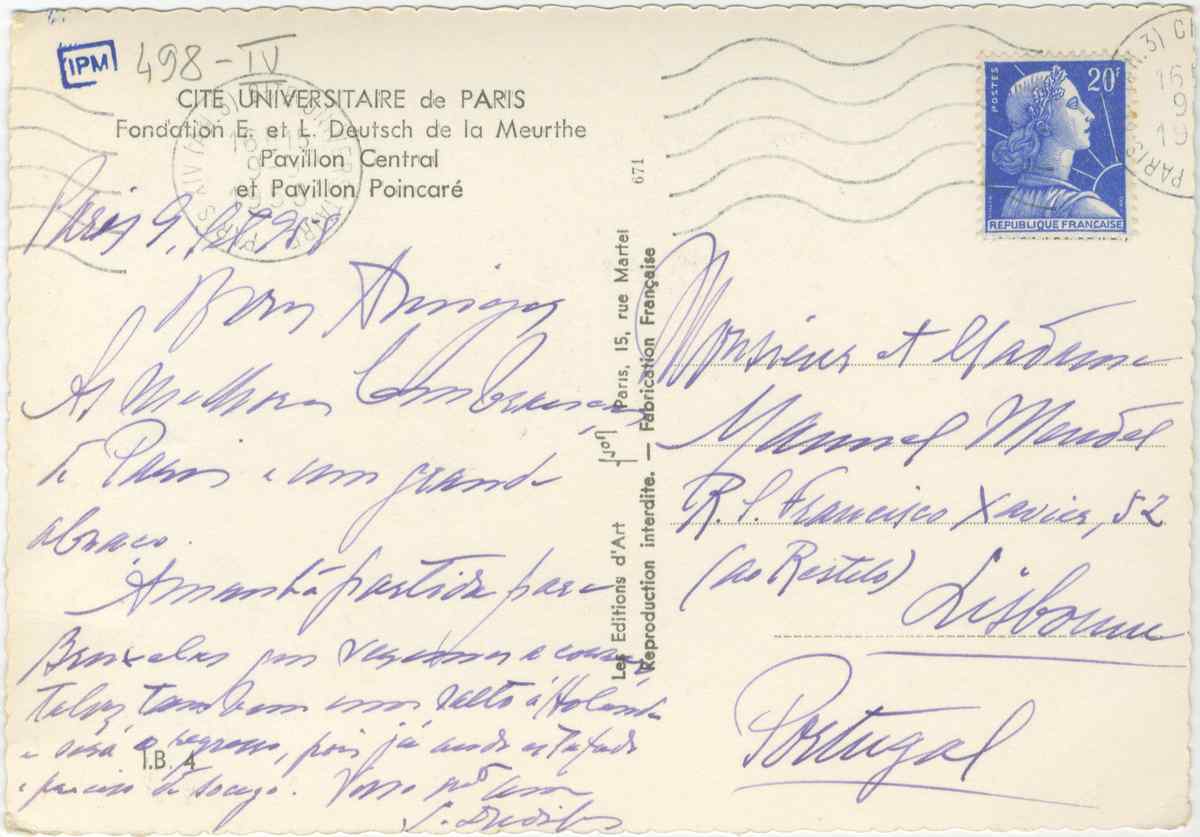 IPM 498-IV
CITÉ UNIVERSITAIRE de PARIS
Fondation E. et L. Deutsch de la Meurthe
Pavillon Central
et Pavillon Poincaré
Paris 9,
Bons Amigos
As melhores lembranças
de Paris e um grande
abraço.
Amanhã partida para
Bruxelas
talvez também um salto à Holanda
e será o regresso, pois já ando estafado
e preciso de socego. Vosso
I.B. 4
Les Editions d'Art Yvon Paris, 15, rue Martel 671
Reproduction interdite. — Fabrication Française
POSTES
20F
REPUBLIQUE FRANÇAISE
Monsieur et Madame
Manuel Mendes
R. S. Francisco Xavier, 52
(ao Restelo)
Lisbonne
Portugal